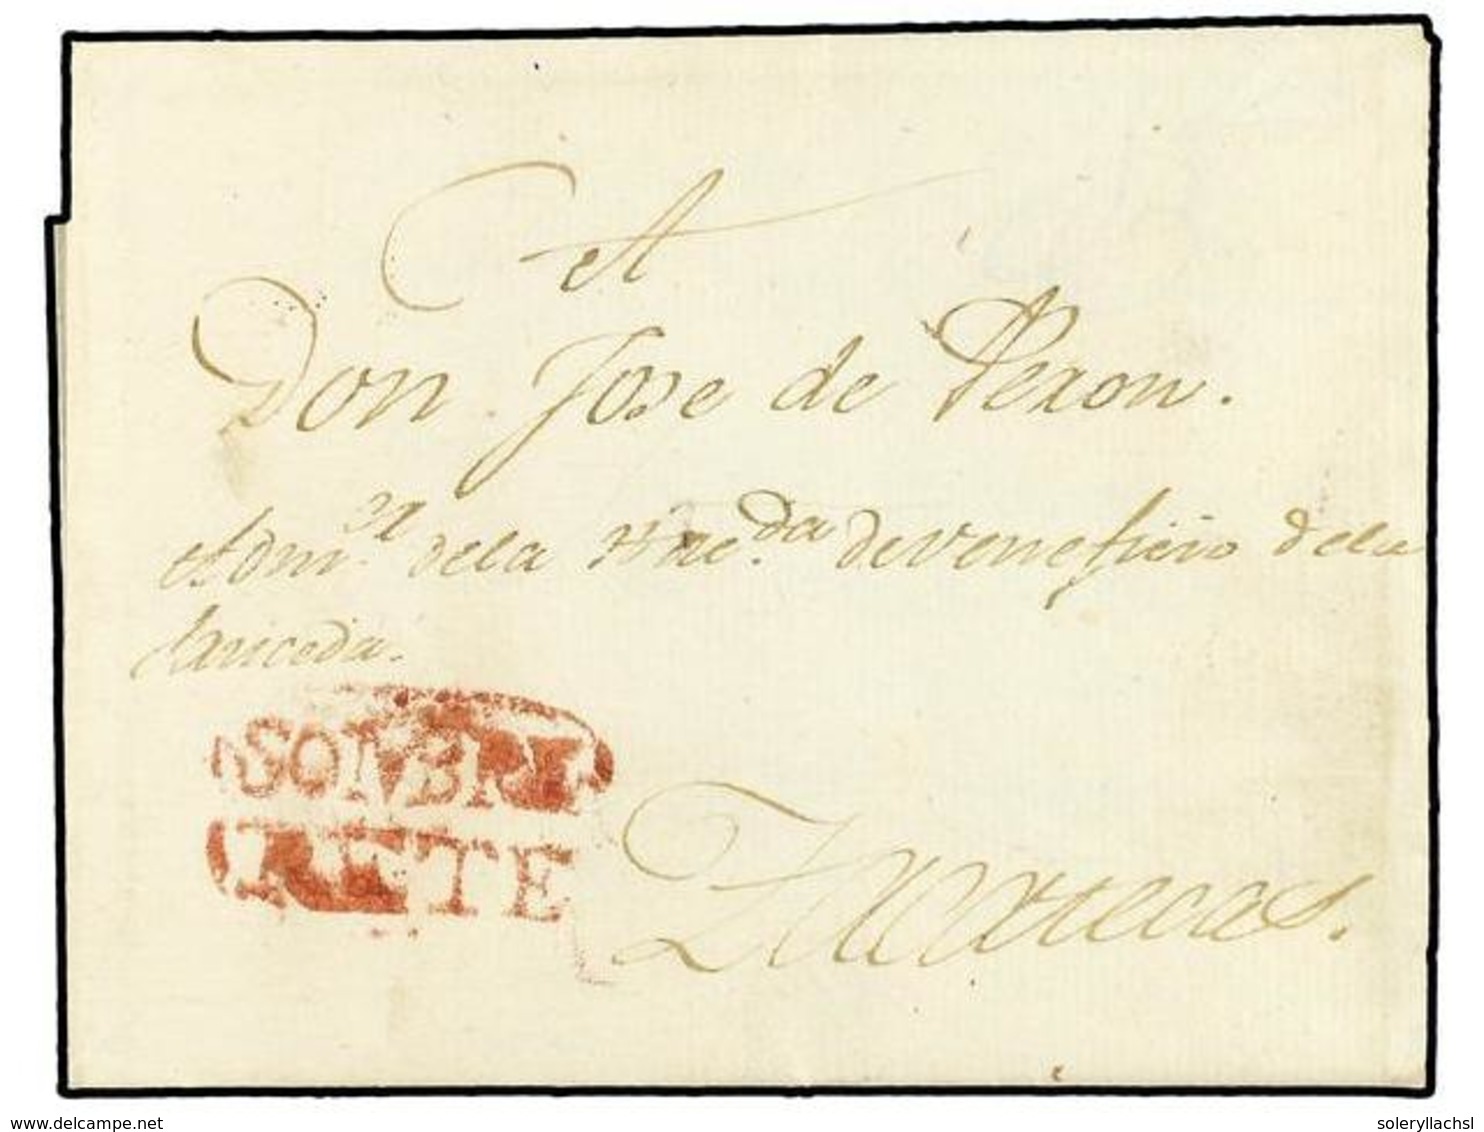 A
Don Jose de Peron.
Adm.or dela Hac.da de Veneficio dela
Sauceda.
SOMBRE
RETE
Zacatecas.
delcampe.net
soleryllachsl